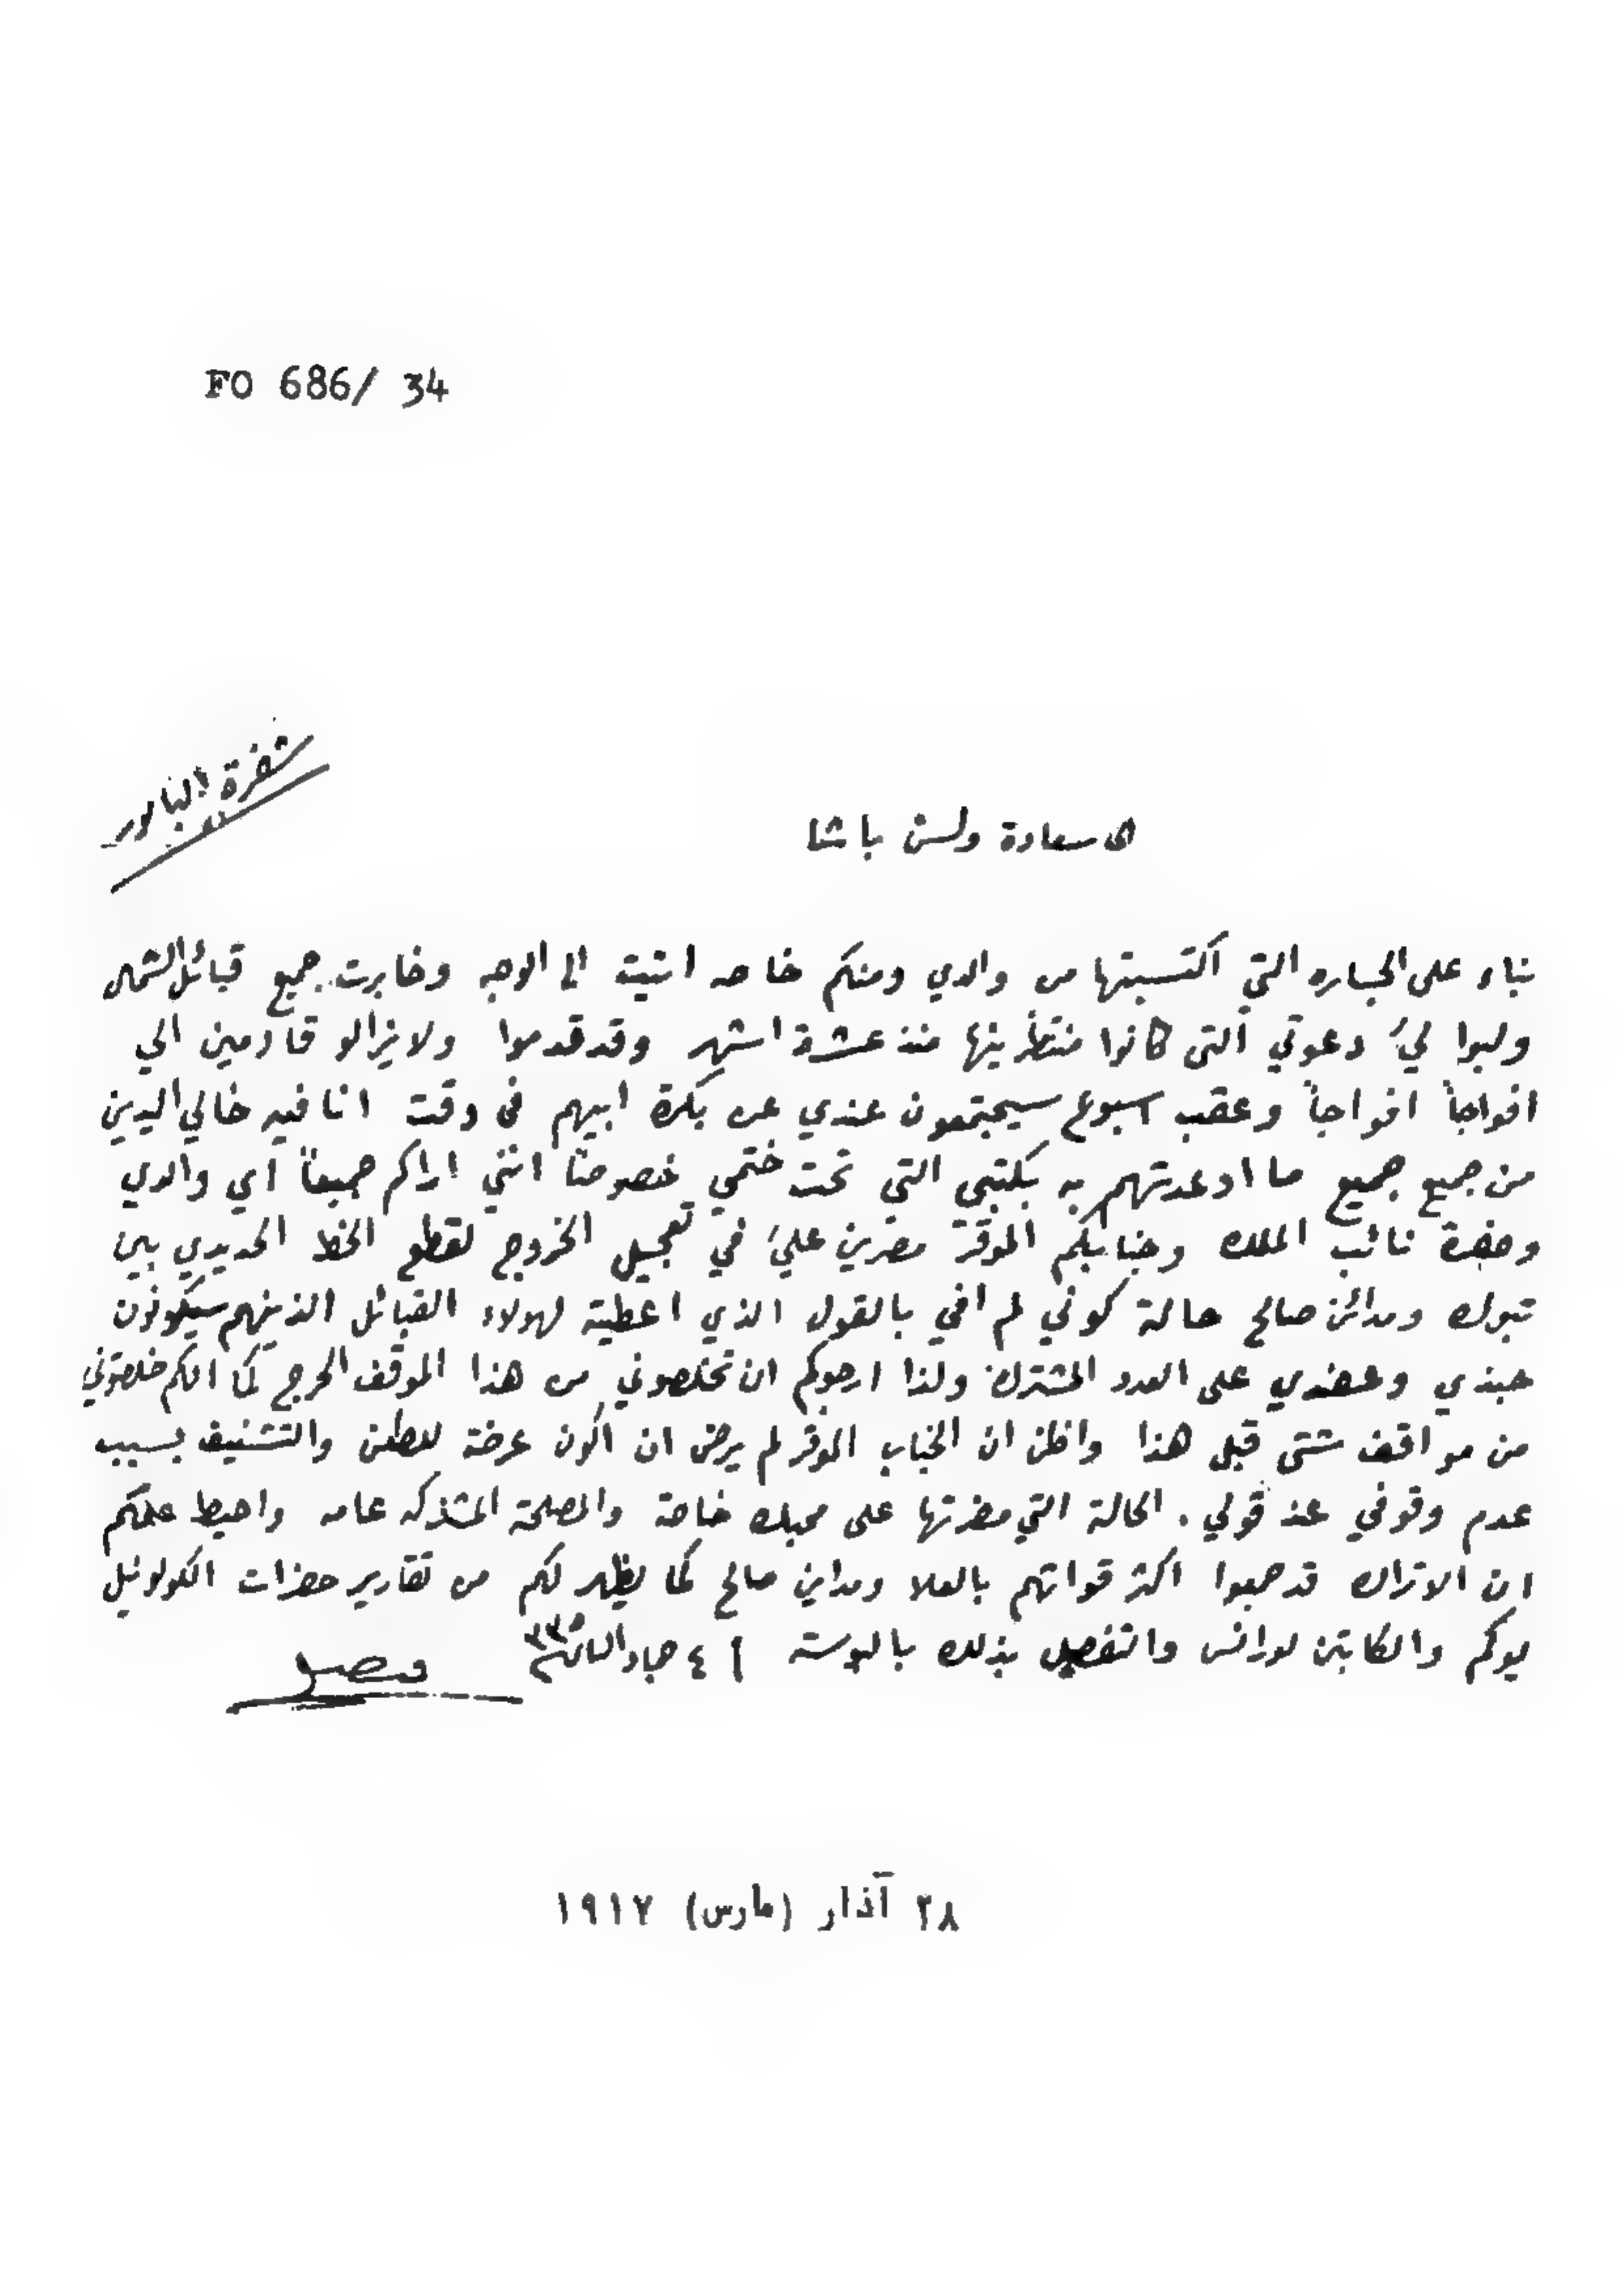 FO 686/ 34
شفرة البابور
الى سعادة ولسن باشا
بناء على الجساره التي اكتسبتها من والدي ومنكم خاصه اتيت الى الوجه وخابرت جميع قبائل الشمال
ولبوا ليَ دعوتي التى كانوا منتظرينها منذ عشرة اشهر وقد قدموا ولا يزالو قادمين الي
افواجاً افواجاً وعقب اسبوع سيجتمعون عندي عن بكرة ابيهم فى وقت انا فيه خالي اليدين
من جميع جميع ما اوعدتهم به بكتبي التي تحت ختمي خصوصاً انني اراكم جميعاً اي والدي
وحضرة نائب الملك وجنابكم الموقر مصرين عليَ في تعجيل الخروج لقطع الخط الحديدي بين
تبوك ومدائن صالح حالة كوني لم افي بالقول الذي اعطيته لهولاء القبائل الذينهم سيكونون
جندي وعضدي على العدو المشترك ولذا ارجوكم ان تخلصوني من هذا الموقف الحرج كما انكم خلصتوني
من مواقف شتى قبل هذا واظن ان الجناب الموقر لم يرض ان اكون عرضة للطعن والتشنيف بسبب
عدم وقوفي عند قولي . الحالة التي مضرتها على محبك خاصة والمصلحة المشتركه عامه واحيط علمكم
ان الاتراك قد جمعوا اكثر قواتهم بالعلا ومداين صالح كما يظهر لكم من تقارير حضرات الكولونيل
يوكم والكابتن لورانس والتفصيل بذلك بالبوسته ٤ جماد الثاني ٣٣٥
فيصل
٢٨ آذار (مارس) ١٩١٧